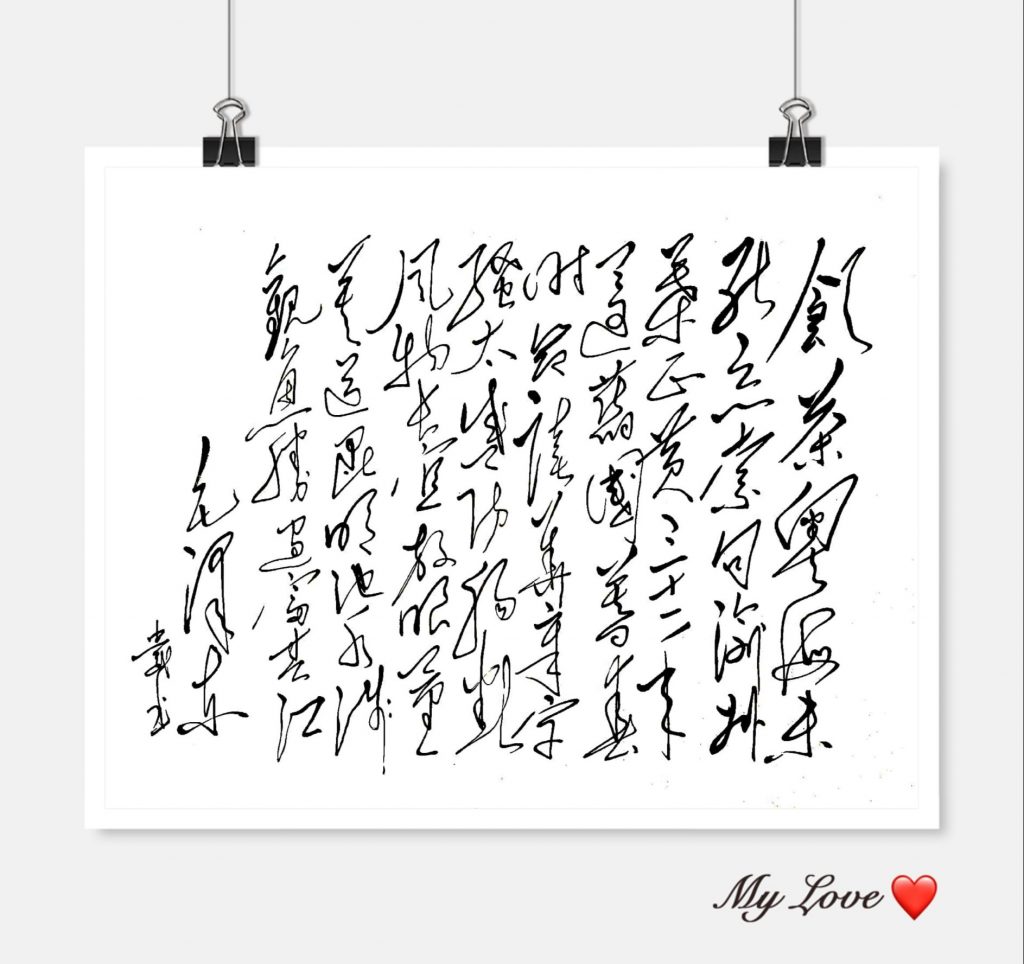 飲茶粵海未
能忘索句渝州
葉正黃三十一年
還舊國暮春
時節讀華章牢
騷太盛防腸斷
風物長宜放眼量
莫道昆明池水淺
觀魚勝過富春江
毛澤東
My Love